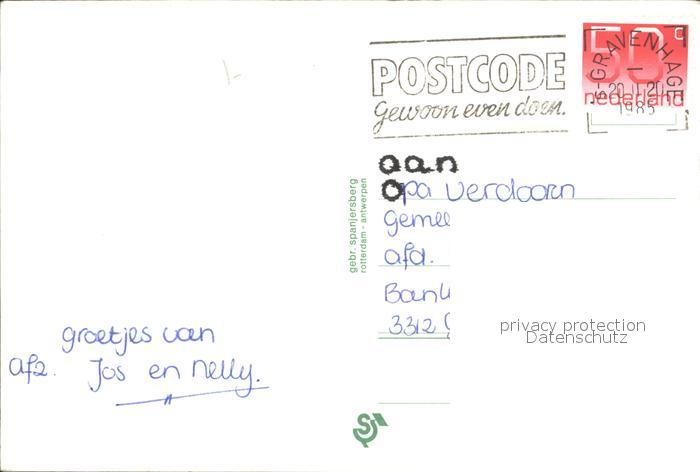 POSTCODE
gewoon even doen.
50 c
nederland
'S-GRAVENHAGE
1985
aan
Opa Verdoorn
Gemee
afd.
Bank
3312
gebr. spanjersberg
rotterdam - antwerpen
groetjes van
afz. Jos en Nelly.
privacy protection
Datenschutz